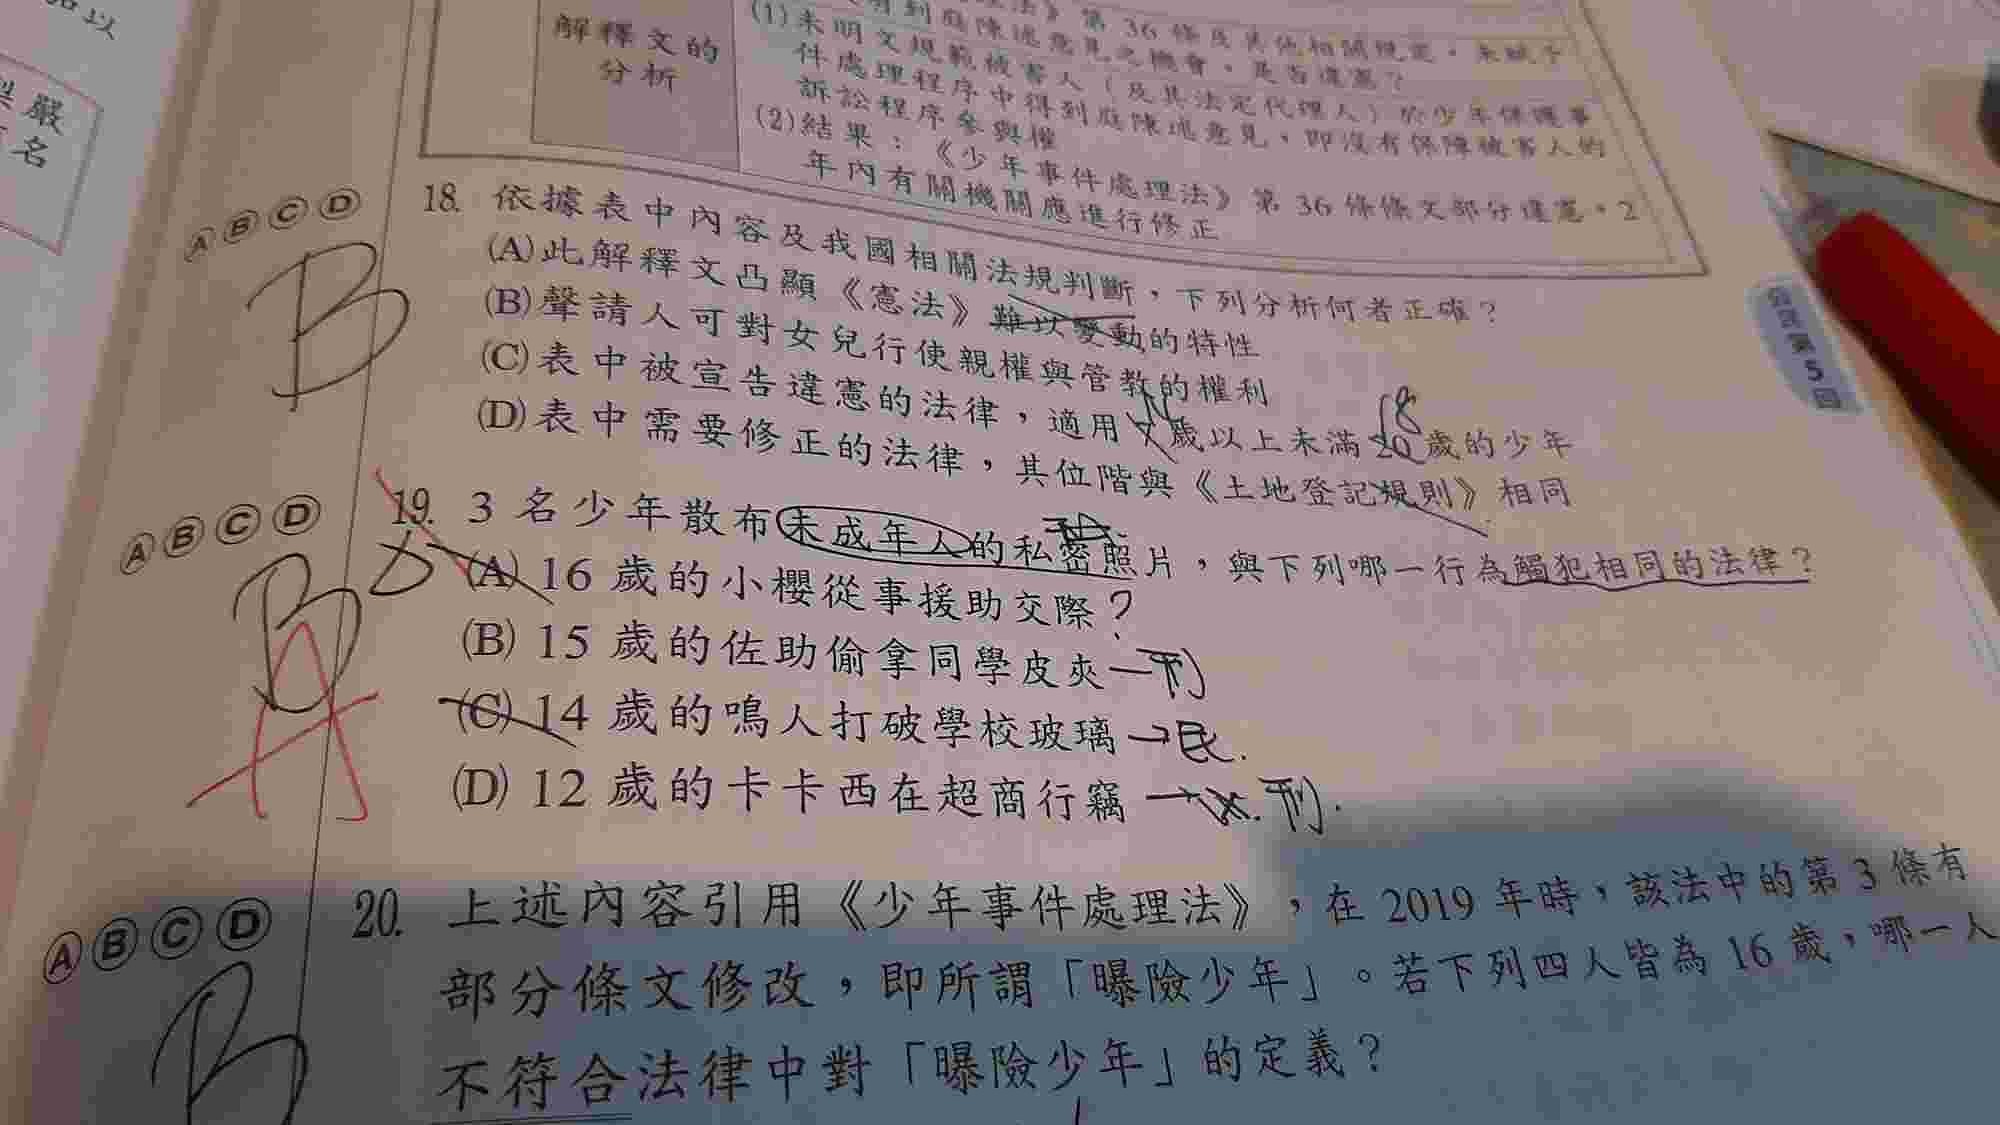 以
嚴
名
解釋文的
分析
第 36 條及其他相關規定,未賦予
有到庭陳述意見之機會,是否違憲?
(1)未明文規範被害人(及其法定代理人)於少年保護事
件處理程序中得到庭陳述意見,即沒有保障被害人的
訴訟程序參與權
(2)結果:《少年事件處理法》第 36 條條文部分違憲。2
年內有關機關應進行修正
公民第5回
ABCD
B
18. 依據表中內容及我國相關法規判斷,下列分析何者正確?
(A)此解釋文凸顯《憲法》難以變動的特性
(B)聲請人可對女兒行使親權與管教的權利
(C)表中被宣告違憲的法律,適用 7 歲以上未滿 20 歲的少年
18
(D)表中需要修正的法律,其位階與《土地登記規則》相同
ABCD
B
A
19. 3 名少年散布未成年人的私密照片,與下列哪一行為觸犯相同的法律?
(A) 16 歲的小櫻從事援助交際?
(B) 15 歲的佐助偷拿同學皮夾—刑
(C) 14 歲的鳴人打破學校玻璃→民.
(D) 12 歲的卡卡西在超商行竊→x.刑.
ABCD
B
20. 上述內容引用《少年事件處理法》,在 2019 年時,該法中的第 3 條有
部分條文修改,即所謂「曝險少年」。若下列四人皆為 16 歲,哪一人
不符合法律中對「曝險少年」的定義?